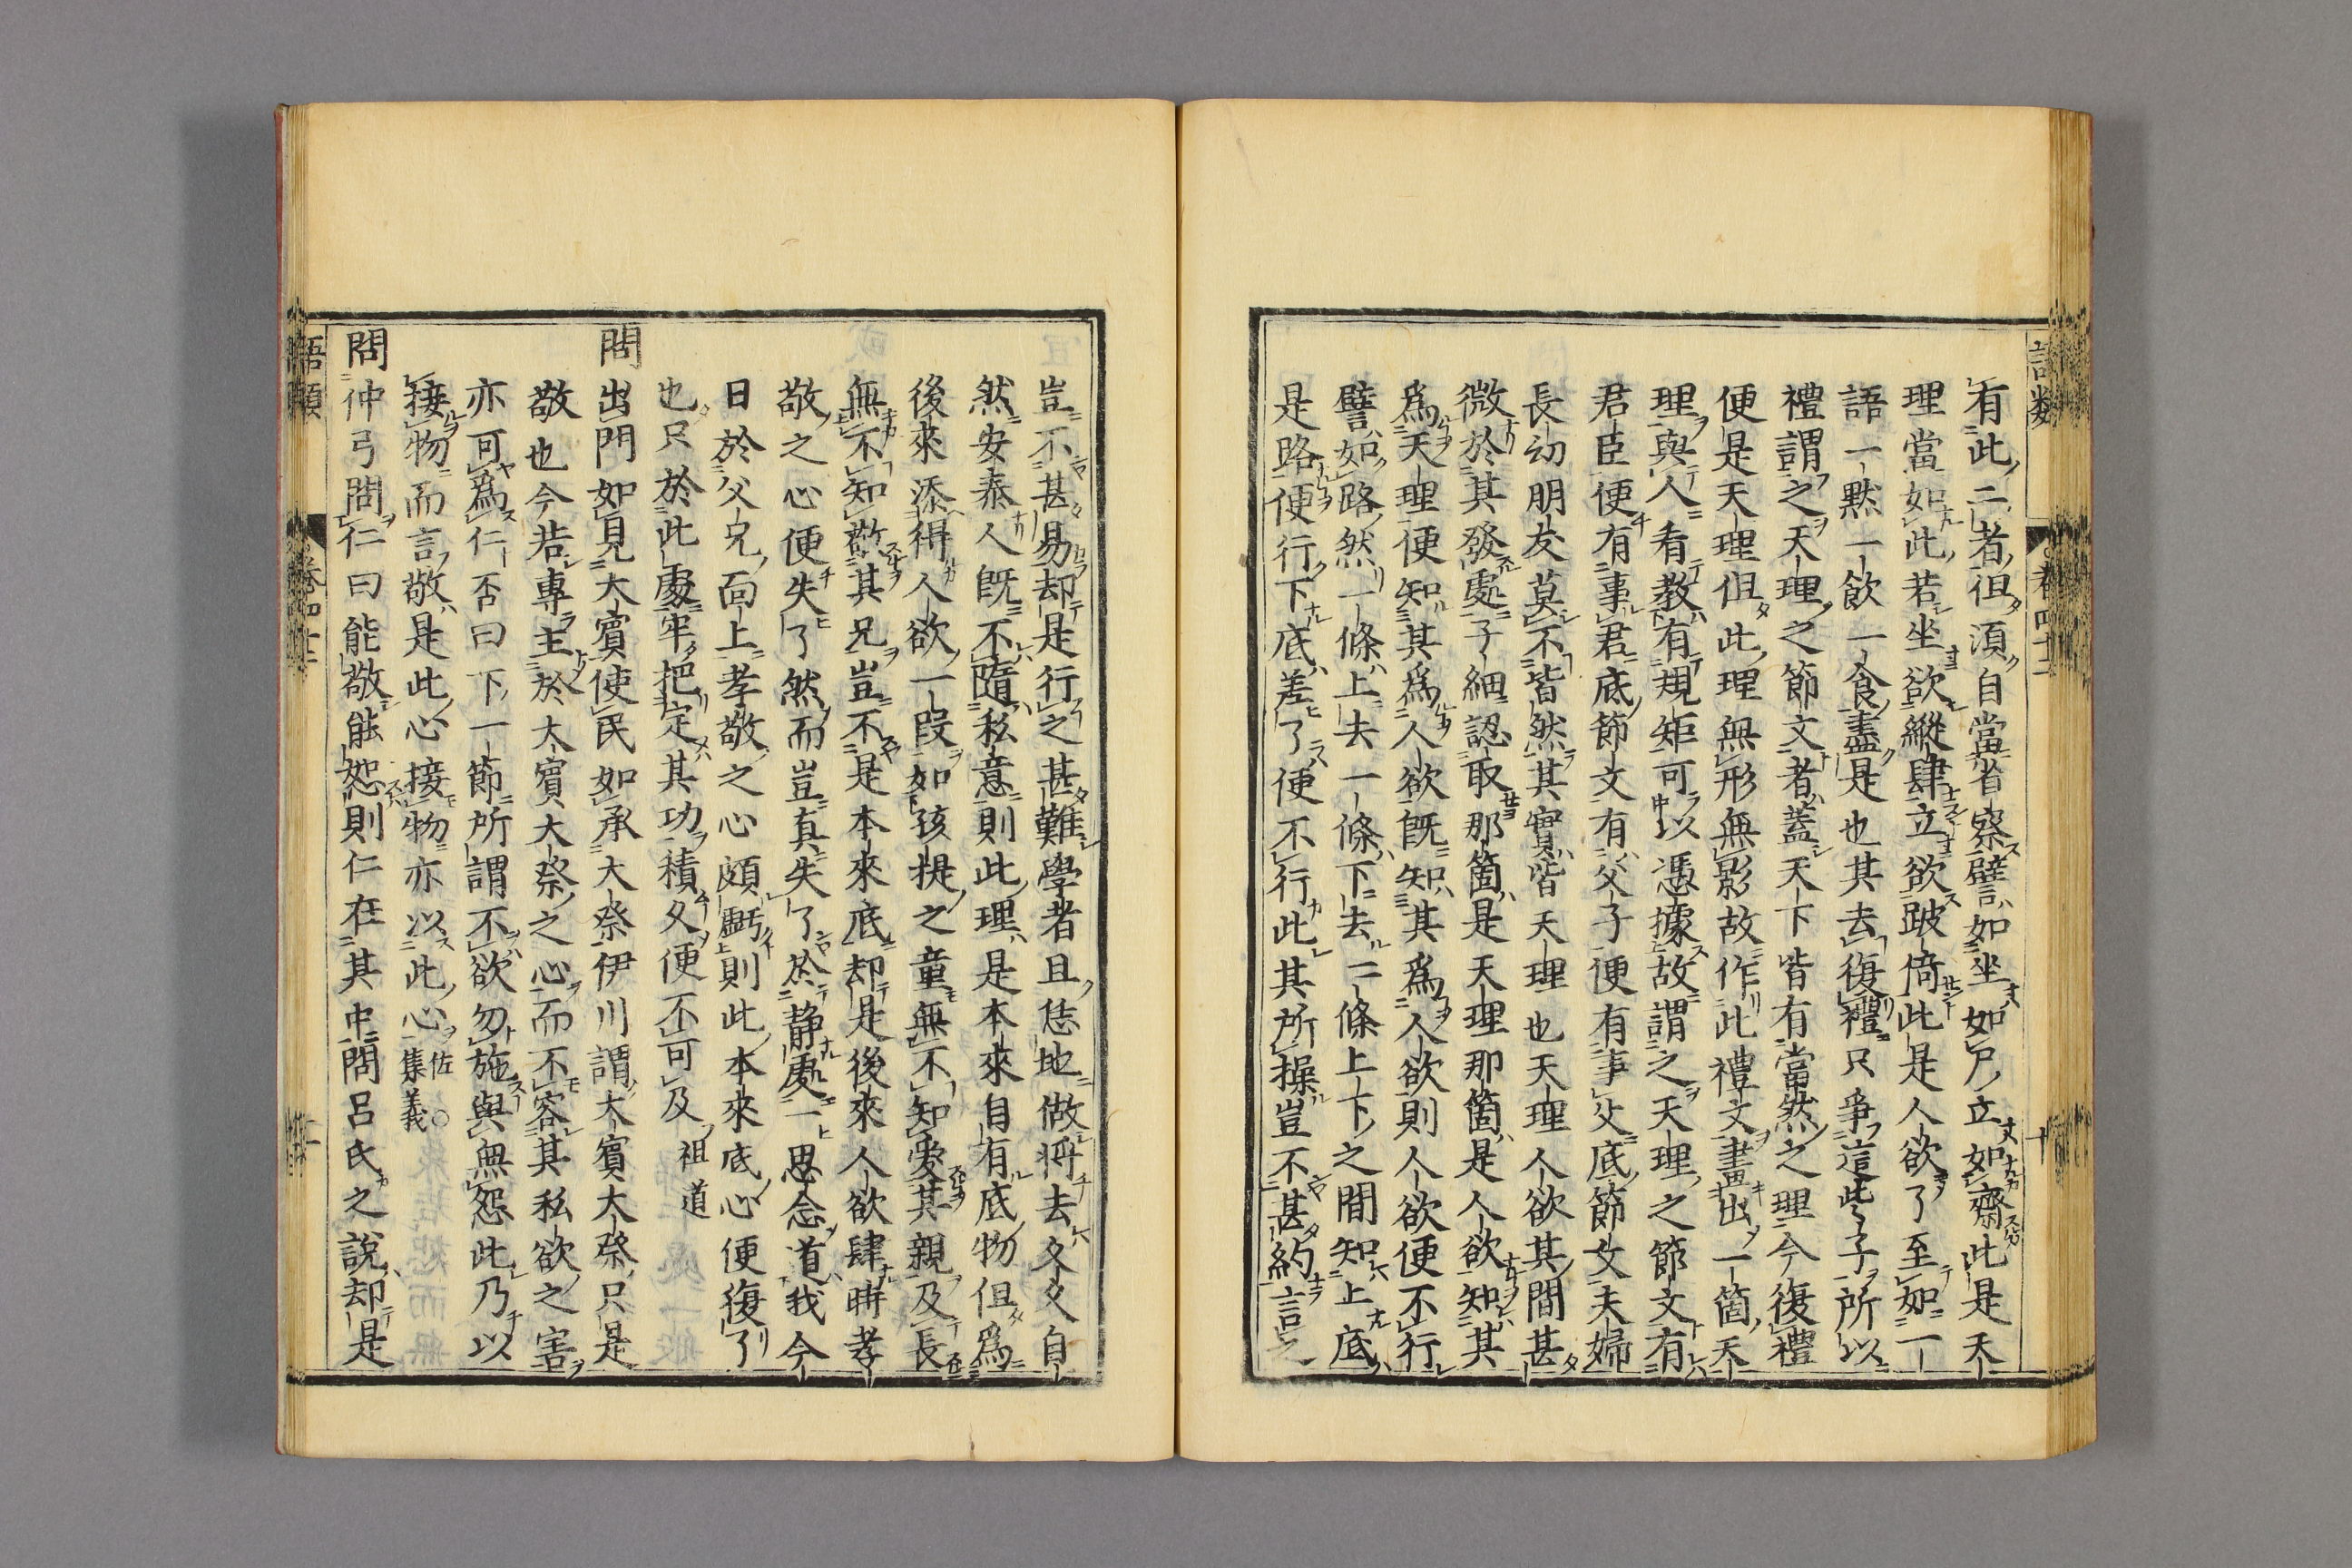 有此二者但須自當省察譬如坐如尸立如齋此是天
理當如此若坐欲縱肆立欲跛倚此是人欲了至如一
語一黙一飲一食盡是也其去復禮只爭這些子所以
禮謂之天理之節文者蓋天下皆有當然之理今復禮
便是天理但此理無形無影故作此禮文畫出一箇天
理與人看教有規矩可以憑據故謂之天理之節文有
君臣便有事君底節文有父子便有事父底節文夫婦
長幼朋友莫不皆然其實皆天理也天理人欲其間甚
微於其發處子細認取那箇是天理那箇是人欲知其
爲天理便知其爲人欲既知其爲人欲則人欲便不行
譬如路然一條上去一條下去一條上下之間知上底
是路便行下底差了便不行此其所操豈不甚約言之
豈不甚易却是行之甚難學者且恁地做將去久久自
然安泰人既不隨私意則此理是本來自有底物但爲
後來添得人欲一段如孩提之童無不知愛其親及長
無不知敬其兄豈不是本來底却是後來人欲肆時孝
敬之心便失了然而豈真失了於静處一思念道我今
日於父兄面上孝敬之心頗虧則此本來底心便復了
也只於此處牢把定其功積久便不可及 祖道
問出門如見大賓使民如承大祭伊川謂大賓大祭只是
敬也今若專主於大賓大祭之心而不容其私欲之害
亦可爲仁否曰下一節所謂不欲勿施與無怨此乃以
接物而言敬是此心接物亦以此心 佐○集義
問仲弓問仁曰能敬能恕則仁在其中問呂氏之說却是
語類
卷四十二
十
語類
卷四十二